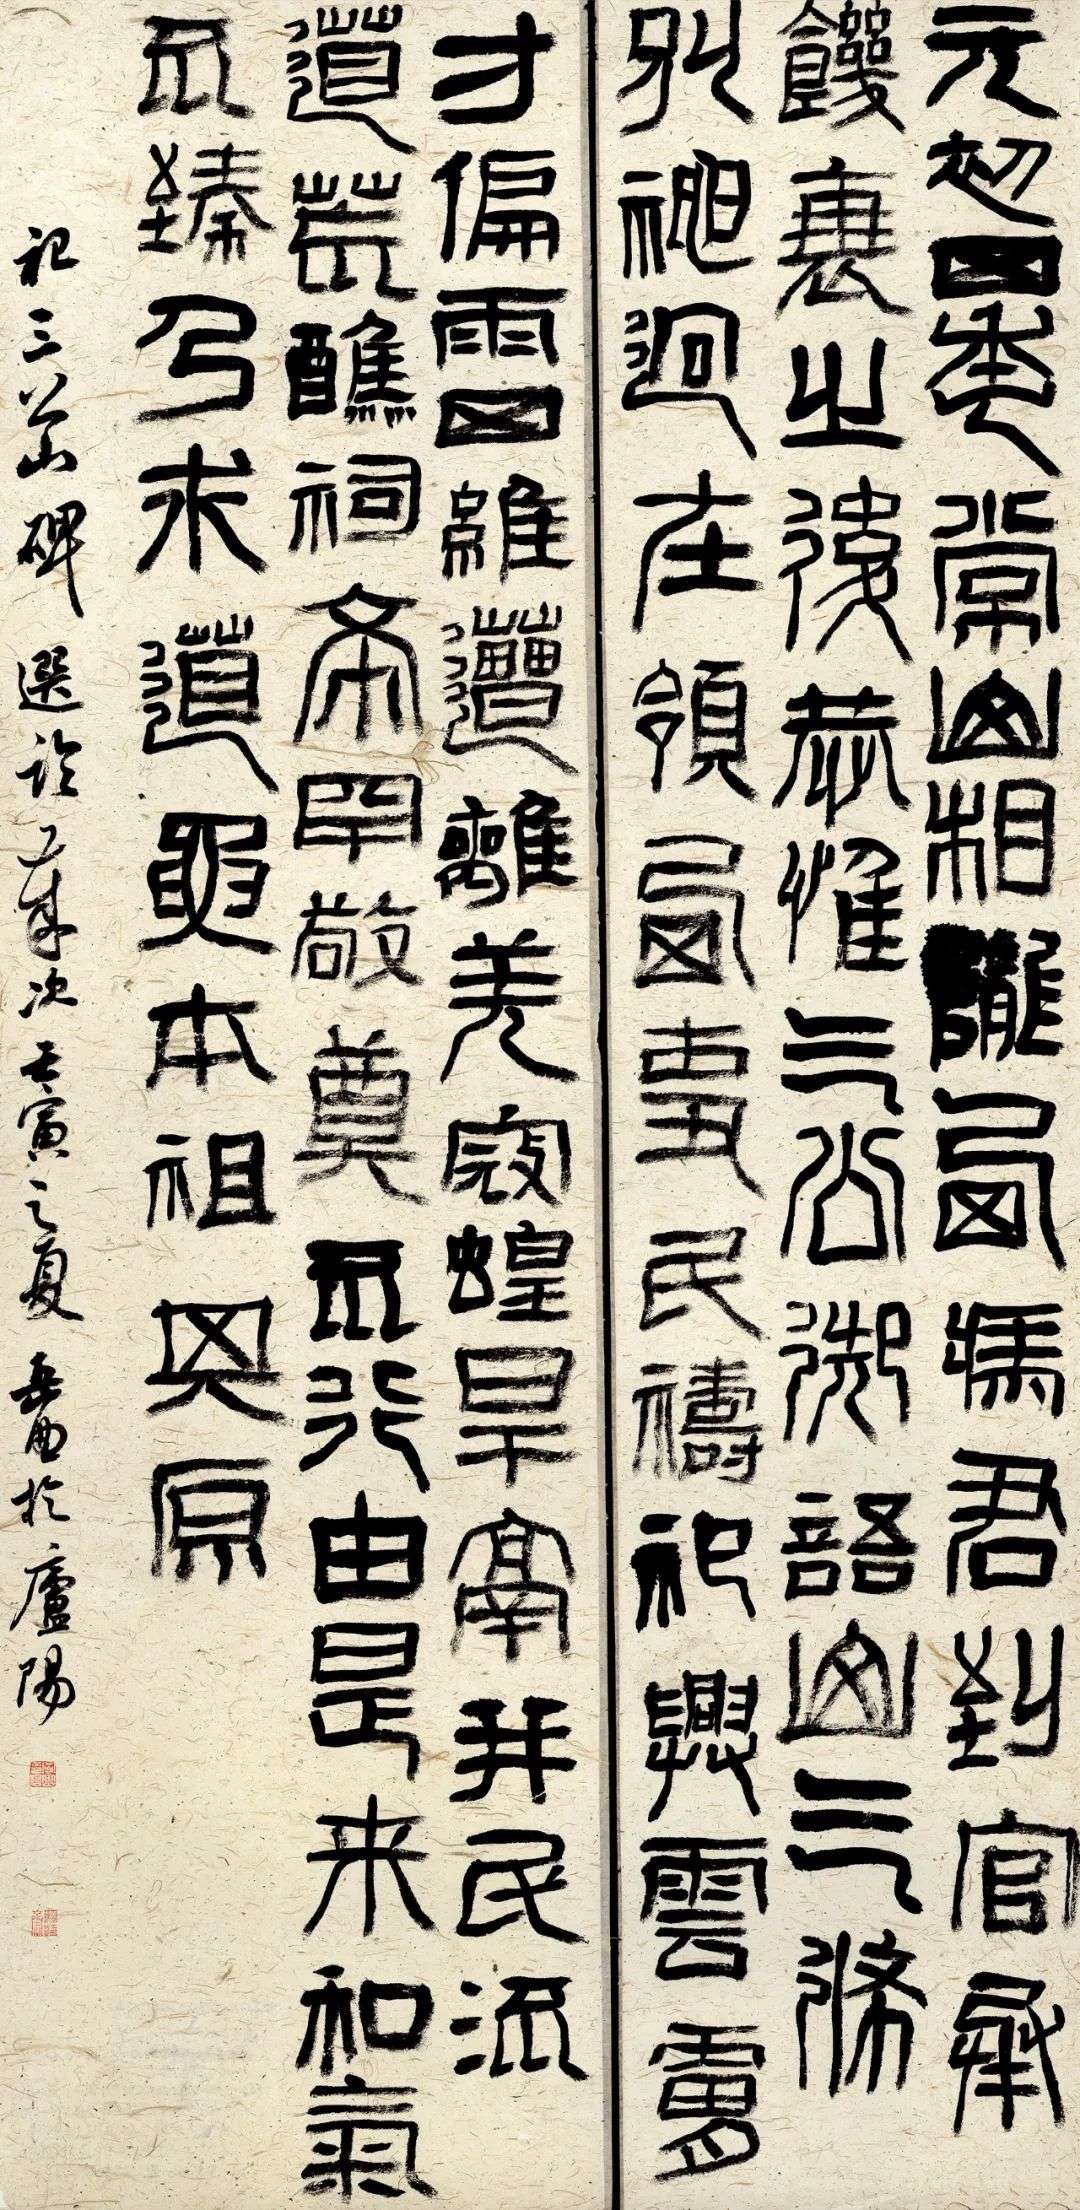 元初四年常山相隴西馮君到官承
饑衰之後恭惟三公御語山三條
別神迥在領西吏民禱祀興雲膚
寸偏雨四維遭離羌寇蝗旱鬲并民流
道荒醮祠希罕敬奠不行由是来和氣
不臻乃求道要本祖其原
祀三公山碑選臨歲次壬寅之夏於廬陽